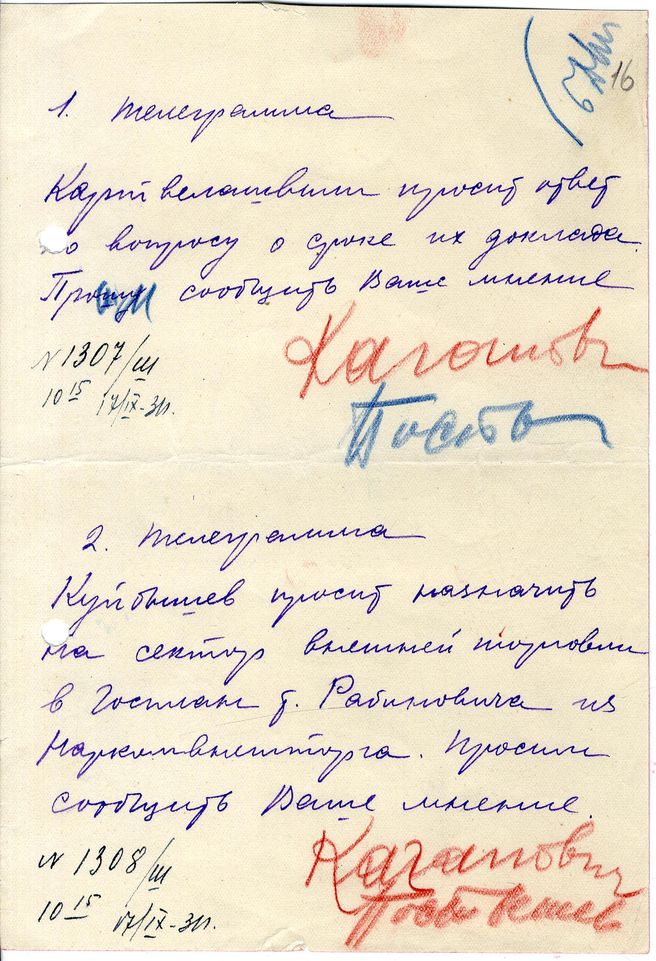 16
1. Телеграмма
Картвелишвили просит ответ
по вопросу о сроке их доклада.
Просим сообщить Ваше мнение
Каганович
N 1307/ш
10 15 17/IX-31г.
Постыш
2. Телеграмма
Куйбышев просит назначить
на сектор внешней торговли
в Госплан т. Рабиновича из
Наркомвнешторга. Просим
сообщить Ваше мнение.
N 1308/ш
Каганович
10 15 17/IX-31г.
Постышев